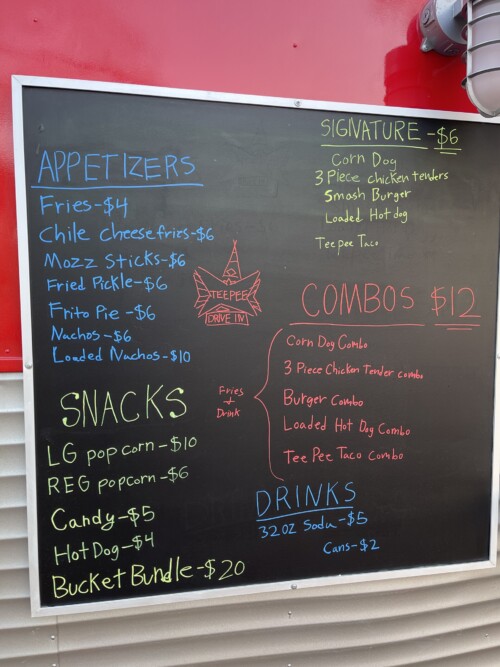 APPETIZERS
Fries-$4
Chile cheese fries-$6
Mozz Sticks-$6
Fried Pickle-$6
Frito Pie-$6
Nachos-$6
Loaded Nachos-$10
TEEPEE
DRIVE IN
SIGNATURE-$6
Corn Dog
3 Piece chicken tenders
Smash Burger
Loaded Hot dog
Teepee Taco
COMBOS $12
Fries
+
Drink
Corn Dog Combo
3 Piece Chicken Tender combo
Burger Combo
Loaded Hot Dog Combo
Tee Pee Taco Combo
SNACKS
LG popcorn-$10
REG popcorn-$6
Candy-$5
Hot Dog-$4
Bucket Bundle-$20
DRINKS
32oz Soda-$5
Cans-$2